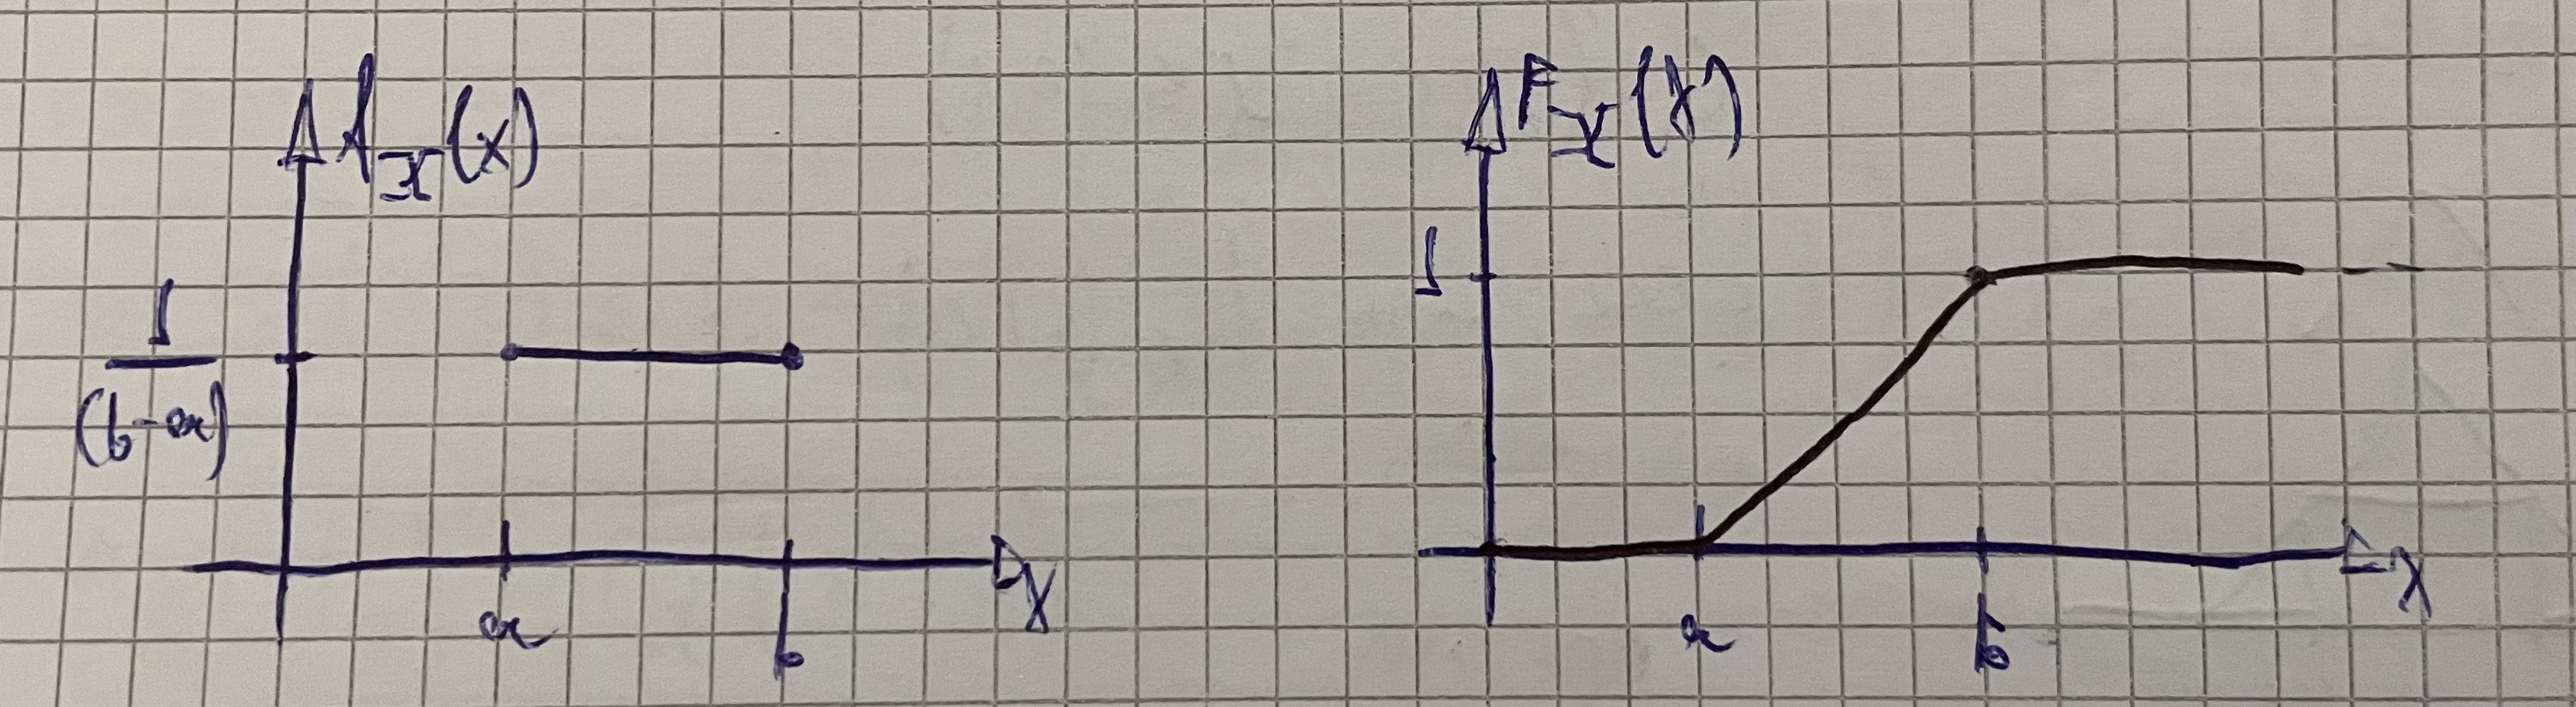 f_X(x)
1
(b-a)
a
b
x
F_X(x)
1
a
b
x